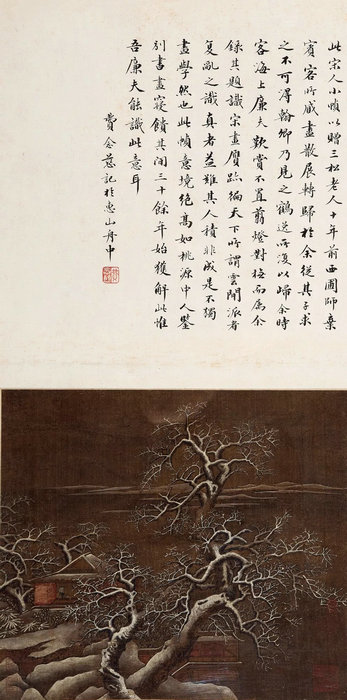 此宋人小幀以贈三松老人十年前西圃師棄
賓客所藏畫散展轉歸於余從其子求
之不可淂翰卿乃見之鶴逸所復以歸余時
客海上廉夫歎賞不置翦燈對橅而屬余
録其題識宋畫贋跡徧天下所謂雲間派者
复亂之識真者益難其人積非成是不獨
畫學然也此幀意境絶高如桃源中人鑒
別書畫寢饋其間三十餘年始獲解此惟
吾廉夫能識此意耳
費念慈記於惠山舟中